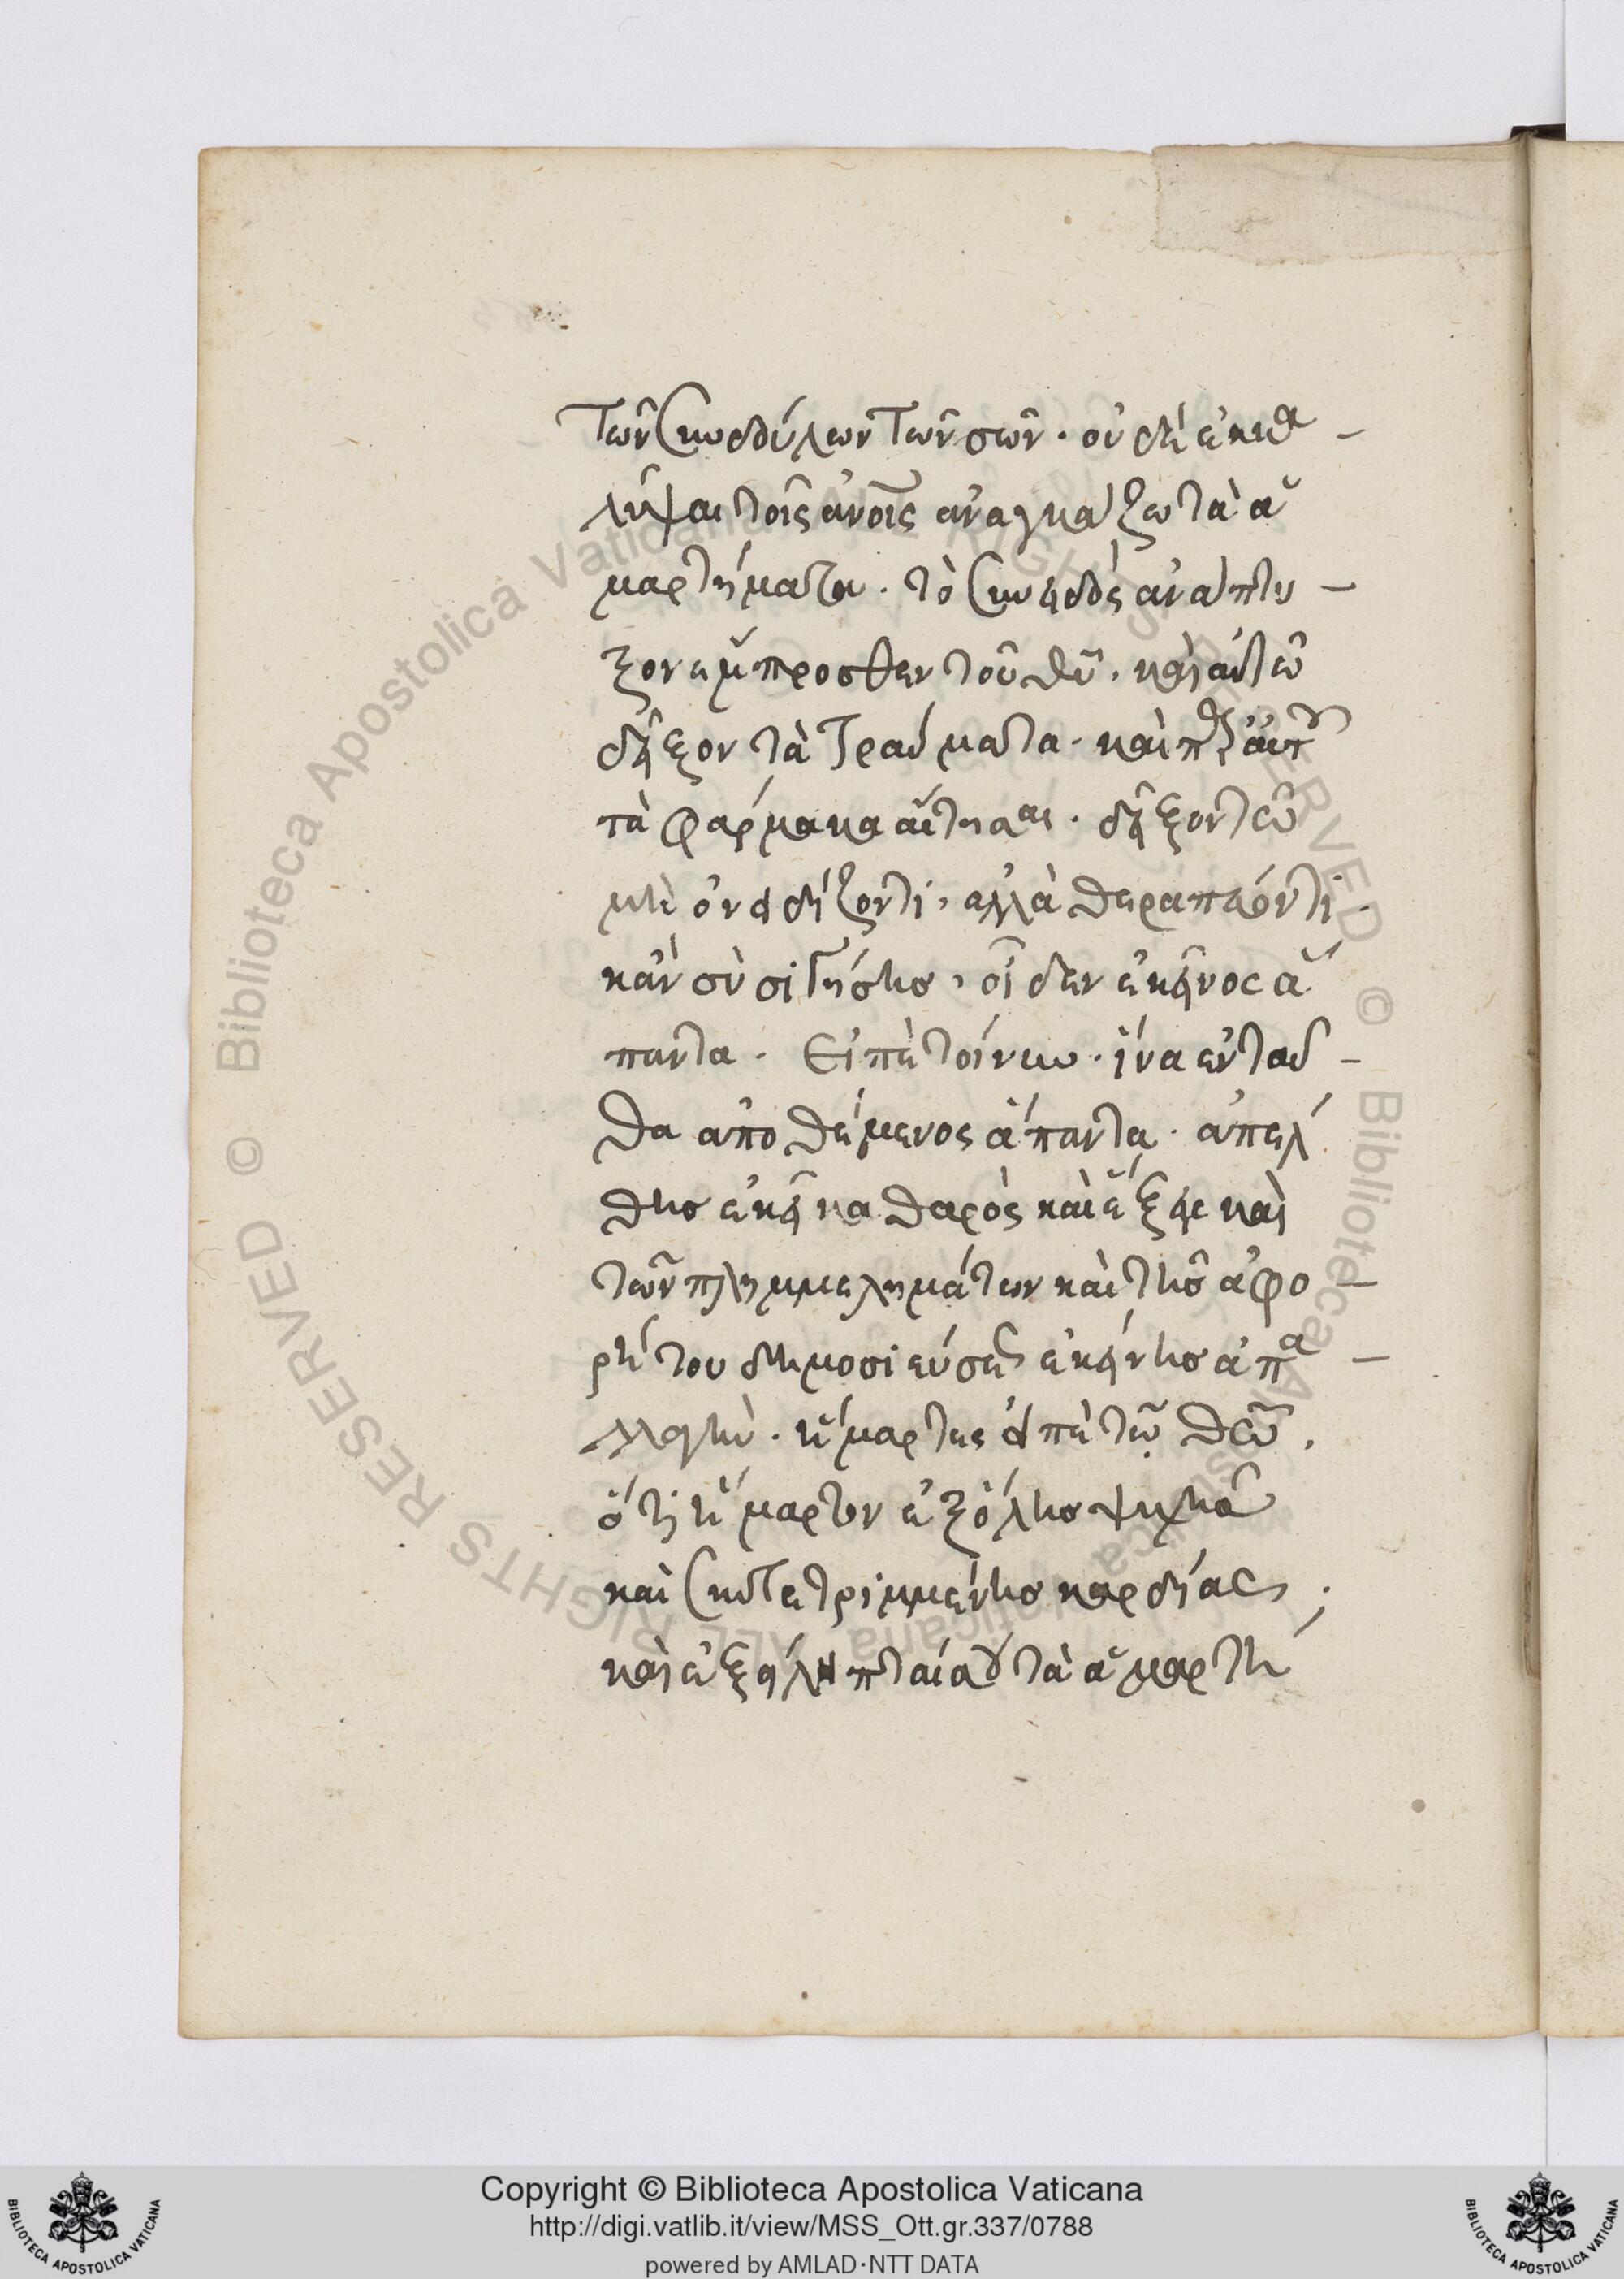 τῶν συνδούλων τῶν σῶν. οὐδὲ ἐκκα –
λύψαι τοῖς ἀνοις ἀναγκάζω τὰ ἁ
μαρτήματα. τὸ συνειδὸς ἀνάπτυ –
ξον ἔμπροσθεν τοῦ θυ. καὶ αὐτῶ
δεῖξον τὰ τραύματα. καὶ παρ' αὐτοῦ
τὰ φάρμακα αἴτησαι. δεῖξον τῶ
μὴ ὀνειδίζοντι, ἀλλὰ θεραπεύοντι.
κἂν σὺ σιγήσης, οἶδεν ἐκεῖνος ἅ
παντα. Εἰπὲ τοίνυν. ἵνα ἐνταῦ –
θα ἀποθέμενος ἅπαντα. ἀπέλ
θης ἐκεῖ καθαρὸς καὶ ἔξεις καὶ
τῶν πλημμελημάτων καὶ τῆς ἀφο –
ρήτου δημοσιεύσεως ἐκείνης ἀπα –
λλαγήν. ἥμαρτες εἰπὲ τῶ θεῶ,
ὅτι ἥμαρτον ἐξ ὅλης ψυχῆς
καὶ συντετριμμένης καρδίας;
καὶ ἐξαλείπται σου τὰ ἁμαρτή
Copyright © Biblioteca Apostolica Vaticana
http://digi.vatlib.it/view/MSS_Ott.gr.337/0788
powered by AMLAD·NTT DATA